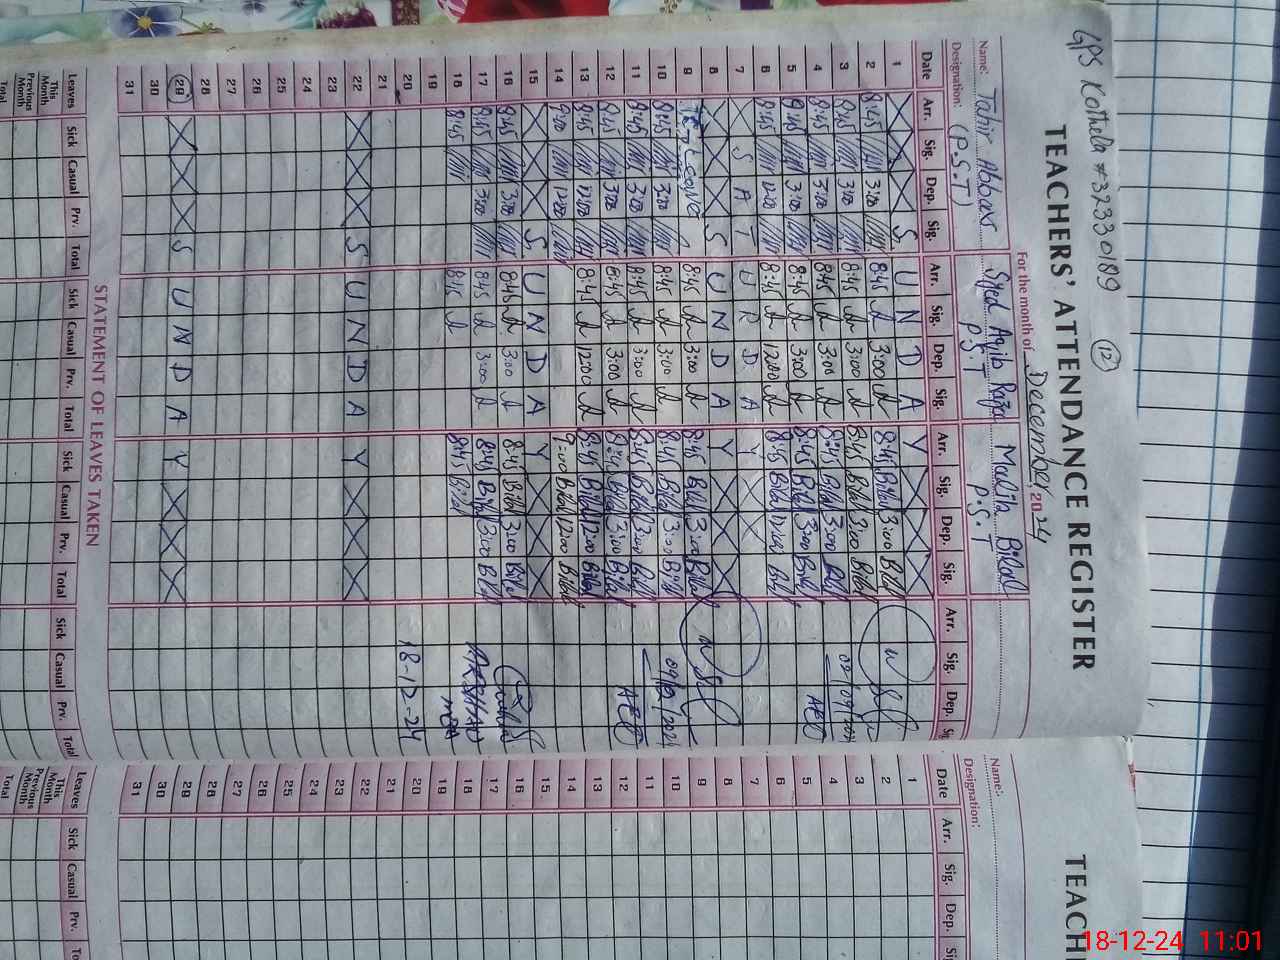 GPS Kothela #37330189 (12)
TEACHERS' ATTENDANCE REGISTER
For the month of December 2024
Name: Tahir Abbas Syed Aqib Raza Maliha Bilal
Designation: (P.S.T) P.S.T P.S.T
Date Arr. Sig. Dep. Sig. Arr. Sig. Dep. Sig. Arr. Sig. Dep. Sig. Arr. Sig. Dep.
1 S U N D A Y
2 8:45 3:00 8:45 3:00 8:45 Bilal 3:00 Bilal
3 8:45 3:00 8:45 3:00 8:45 Bilal 3:00 Bilal
4 8:45 3:00 8:45 3:00 8:45 Bilal 3:00 Bilal
5 8:45 3:00 8:45 3:00 8:45 Bilal 3:00 Bilal
6 8:45 12:00 8:45 12:00 8:45 Bilal 12:00 Bilal
7 S A T U R D A Y
8 S U N D A Y
9 Leave 8:45 3:00 8:45 Bilal 3:00 Bilal
10 8:45 3:00 8:45 3:00 8:45 Bilal 3:00 Bilal
11 8:45 3:00 8:45 3:00 8:45 Bilal 3:00 Bilal
12 8:45 3:00 8:45 3:00 8:45 Bilal 3:00 Bilal
13 8:45 12:00 8:45 12:00 8:45 Bilal 12:00 Bilal
14 9:00 12:00 9:00 Bilal 12:00 Bilal
15 S U N D A Y
16 8:45 3:00 8:45 3:00 8:45 Bilal 3:00 Bilal
17 8:45 3:00 8:45 3:00 8:45 Bilal 3:00 Bilal
18 8:45 8:45 8:45 Bilal
19
20
21
22 S U N D A Y
23
24
25
26
27
28
29 S U N D A Y
30
31
AEO
AEO
ARSHAD
MEA
18-12-24
STATEMENT OF LEAVES TAKEN
Leaves Sick Casual Prv. Total Sick Casual Prv. Total Sick Casual Prv. Total Sick Casual Prv. Total
This Month
Previous Month
Total
TEACH
Name:
Designation:
Date Arr. Sig. Dep.
1
2
3
4
5
6
7
8
9
10
11
12
13
14
15
16
17
18
19
20
21
22
23
24
25
26
27
28
29
30
31
Leaves Sick Casual Prv.
This Month
Previous Month
Total
18-12-24 11:01